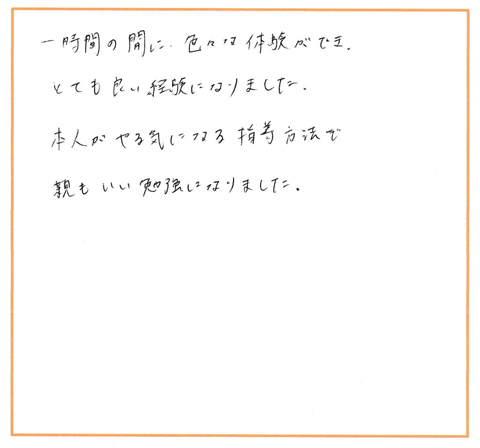 一時間の間に、色々な体験ができ、
とても良い経験になりました。
本人がやる気になる指導方法で
親もいい勉強になりました。